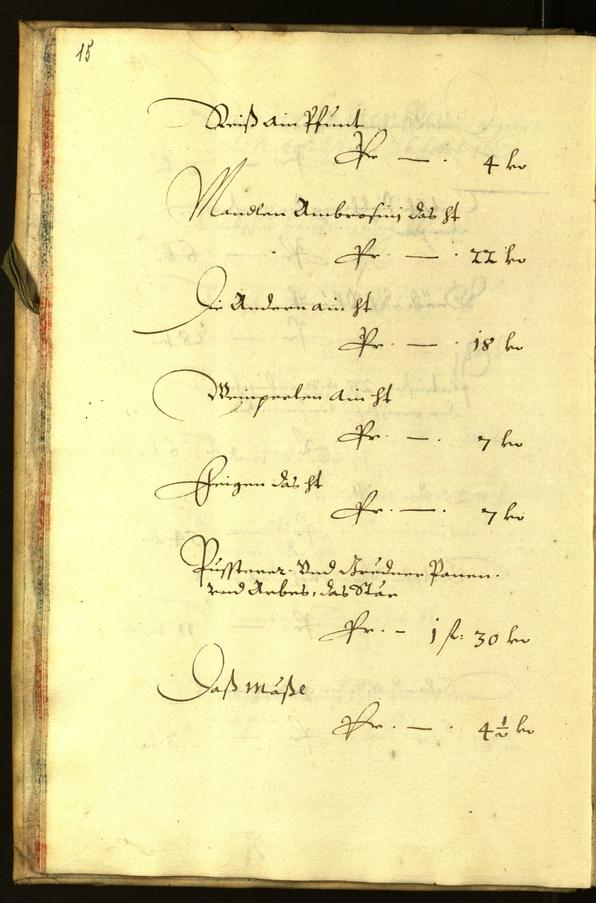 15
Reiß ain Pfundt
Pr. — . 4 kr
Mandlen Ambrosini das ℔
Pr. — . 22 kr
Die Andern ain ℔
Pr. — . 18 kr
Weinperlen ain ℔
Pr. — . 7 kr
Feigen das ℔
Pr. — . 7 kr
Pussterer Und Gredner Panen.
vnd Arbes, das Stär
Pr. — 1 fl: 30 kr
Daß Mäßl
Pr. — . 4 ½ kr